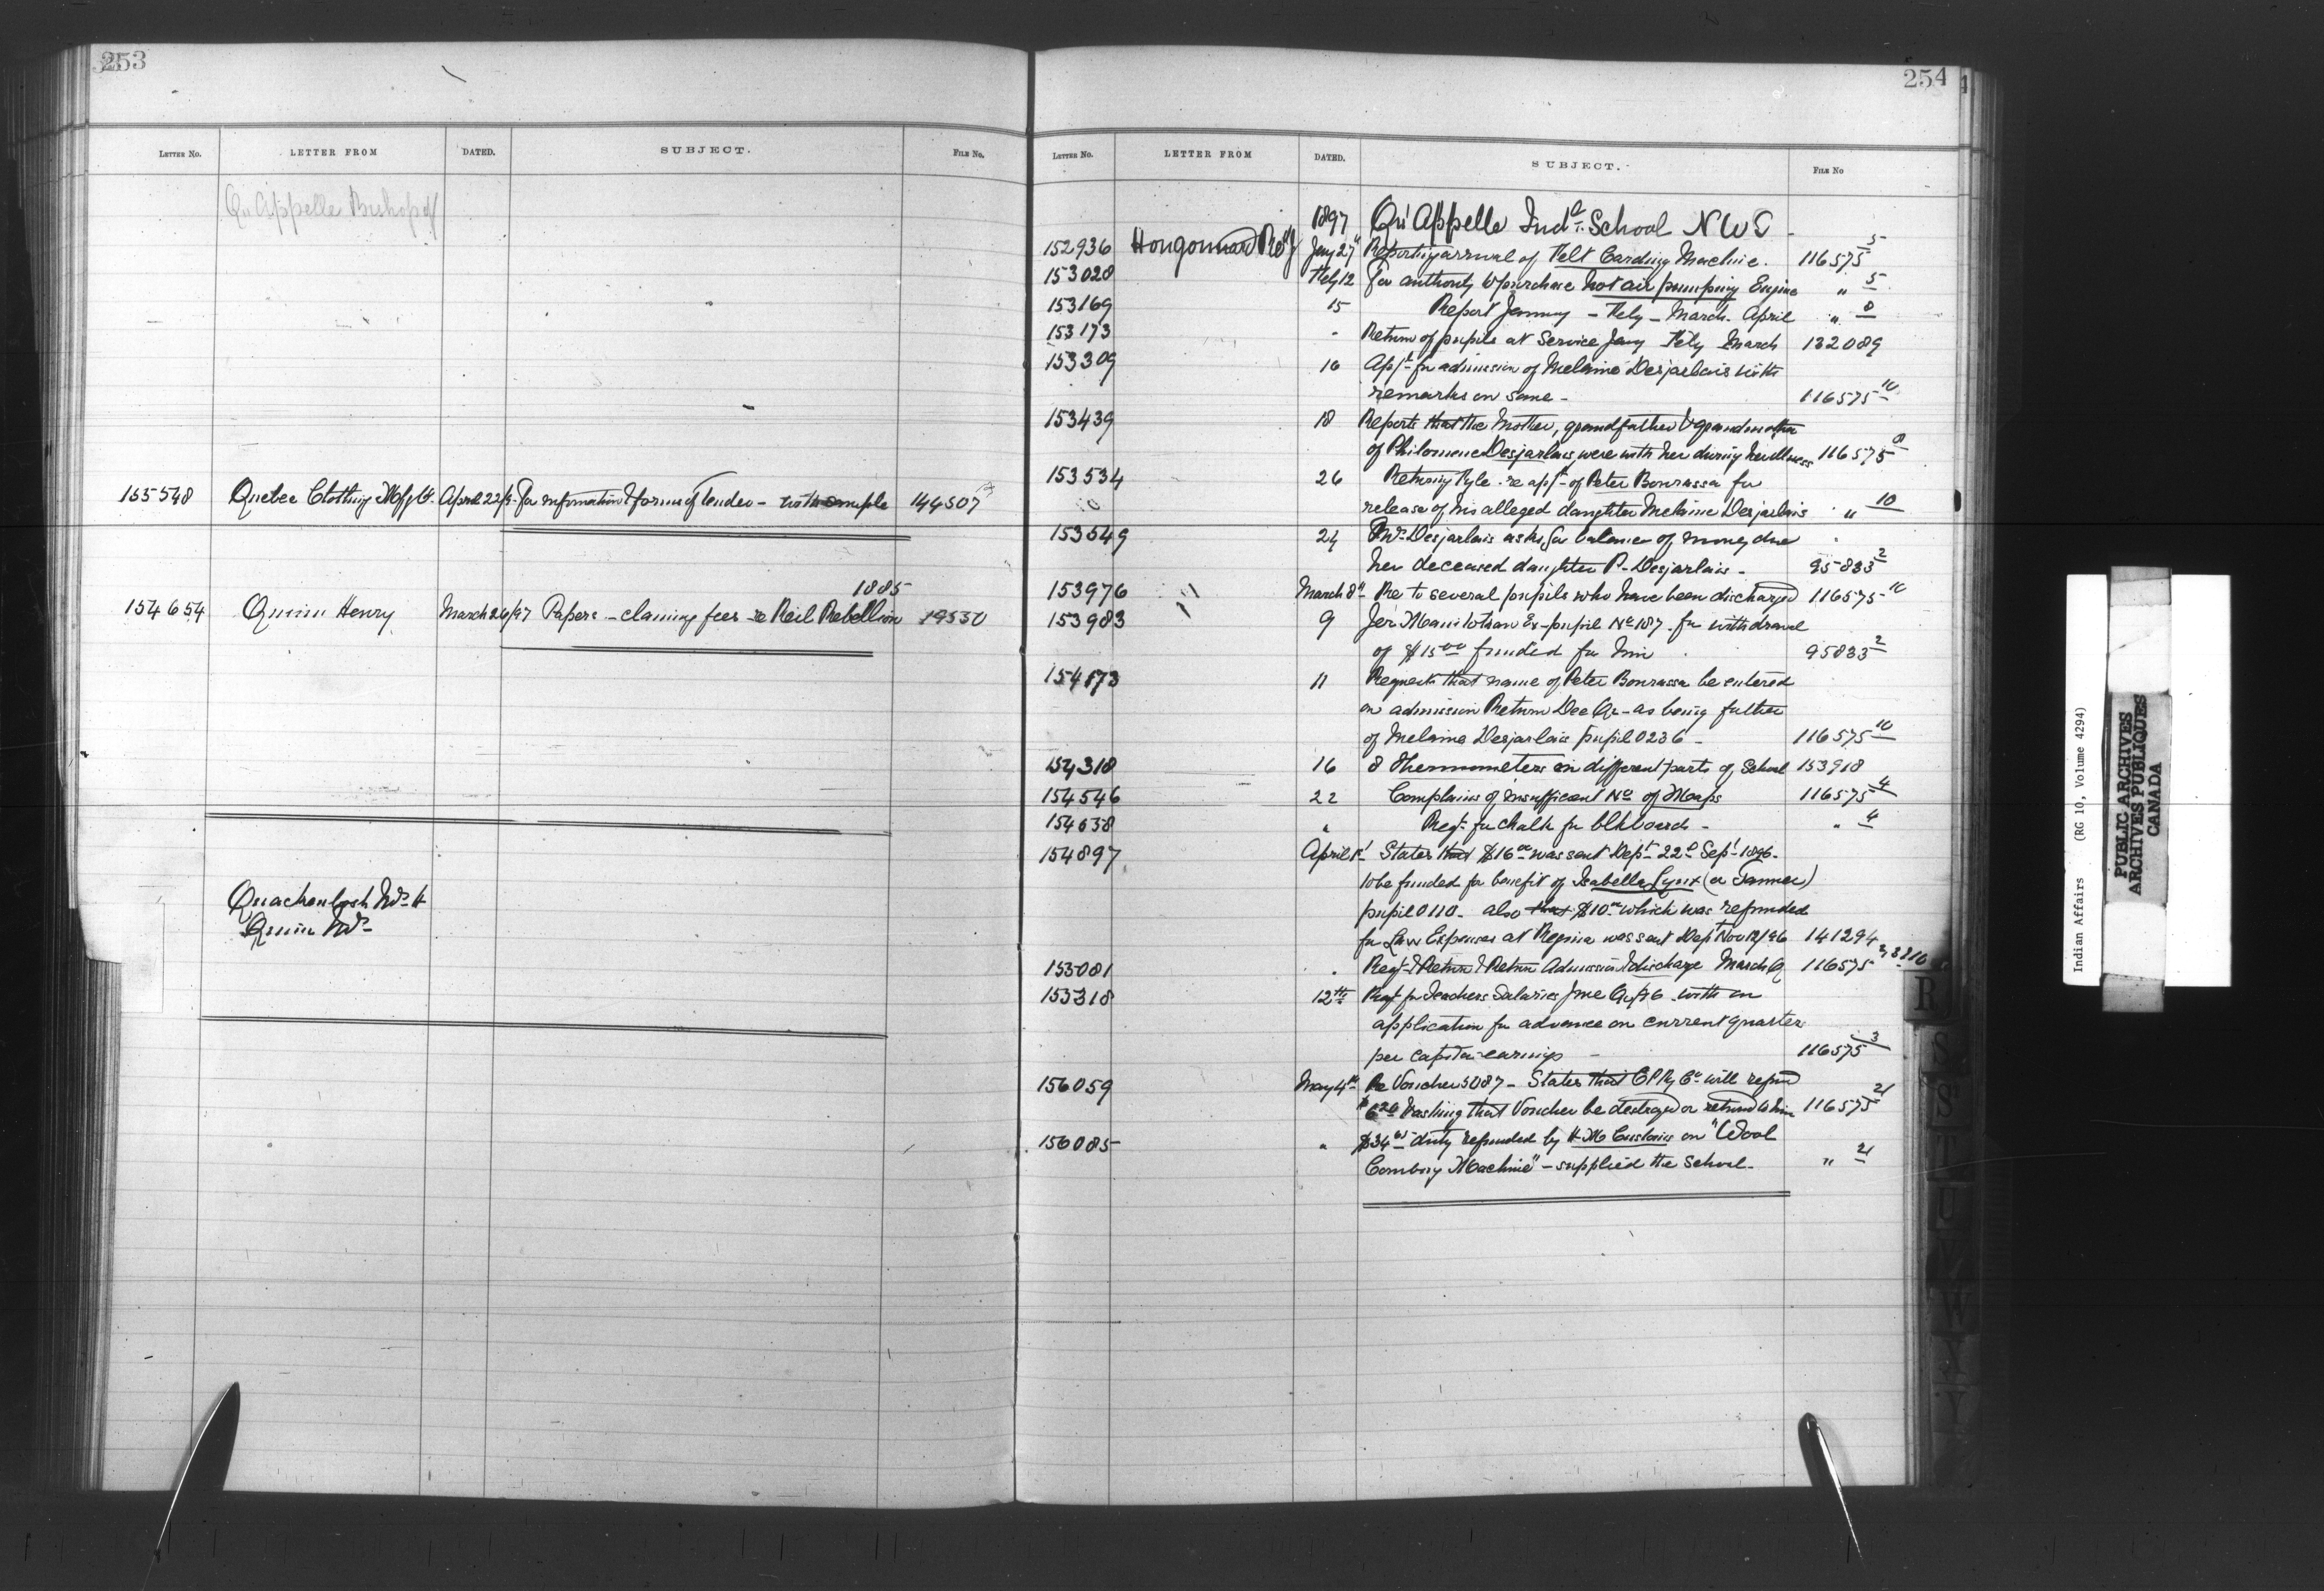 253
LETTER NO. LETTER FROM DATED. SUBJECT. FILE NO.
Qu'Appelle Bishop of
155548 Quebec Clothing Mfg Co. April 22/97 For information & forms of Tender – with sample 144507
1885
154654 Quinn Henry March 26/97 Papers – claiming fees re Reil Rebellion 19550
Quackenbosh Wm H
Quinn Wm
254
LETTER NO. LETTER FROM DATED. SUBJECT. FILE NO
1897 Qu'Appelle Indl School N W T
152936 Hougonnard Revd J Jany 27 Reporting arrival of Felt Carding Machine. 116575 5
153028 Feby 12 For authority to purchase hot air pumping Engine " 5
153169 15 Report January – Feby – March. April " 8
153173 " Return of pupils at Service Jany Feby March 132089
153309 16 Appn for admission of Melaine Desjarlais with
remarks on same – 116575 10
153439 18 Reports that the Mother, grandfather & grandmother
of Philomene Desjarlais were with her during her illness 116575 8
153534 26 Returning Pyle re appn of Peter Bourassa for
release of his alleged daughter Melaine Desjarlais " 10
153549 24 Mrs Desjarlais asks for balance of money due
her deceased daughter P. Desjarlais – 95833 2
153976 " March 8th Re to several pupils who have been discharged 116575 10
153983 9 Jer Manitotran Ex-pupil No 187 for withdrawal
of $15 00 funded for him 95833 2
154173 11 Requests that name of Peter Bourassa be entered
on admission Return Dec Qr – as being father
of Melaine Desjarlais pupil 0236 – 116575 10
154318 16 8 Thermometers in different parts of School 153918
154546 22 Complains of insufficient No of Maps 116575 4
154638 " Reqn for chalk for blkboards – " 4
154897 April 1st States that $16 00 was sent Dept 22d Sept 1896 –
to be funded for benefit of Isabella Lynx (or Tanner)
pupil 0110 – also that $10 00 which was refunded
for Law Expenses at Regina was sent Dept Nov 12/96 141294
155081 " Reqn & Return & Return Admission & discharge March Q 116575
155318 12th Reqn for Teachers Salaries with an
application for advance on current quarter
per capita earnings – 116575 3
156059 May 4th Re Voucher 5087 – States that CPRy Co will refund
$6 24 Asking that Voucher be destroyed or returned to him 116575 21
156085 " $34 duty refunded by H M Customs on "Wool
Combing Machine" – supplied the School – " 21
R
S
T
U
W
Y
Indian Affairs (RG 10, Volume 4294)
PUBLIC ARCHIVES
ARCHIVES PUBLIQUES
CANADA